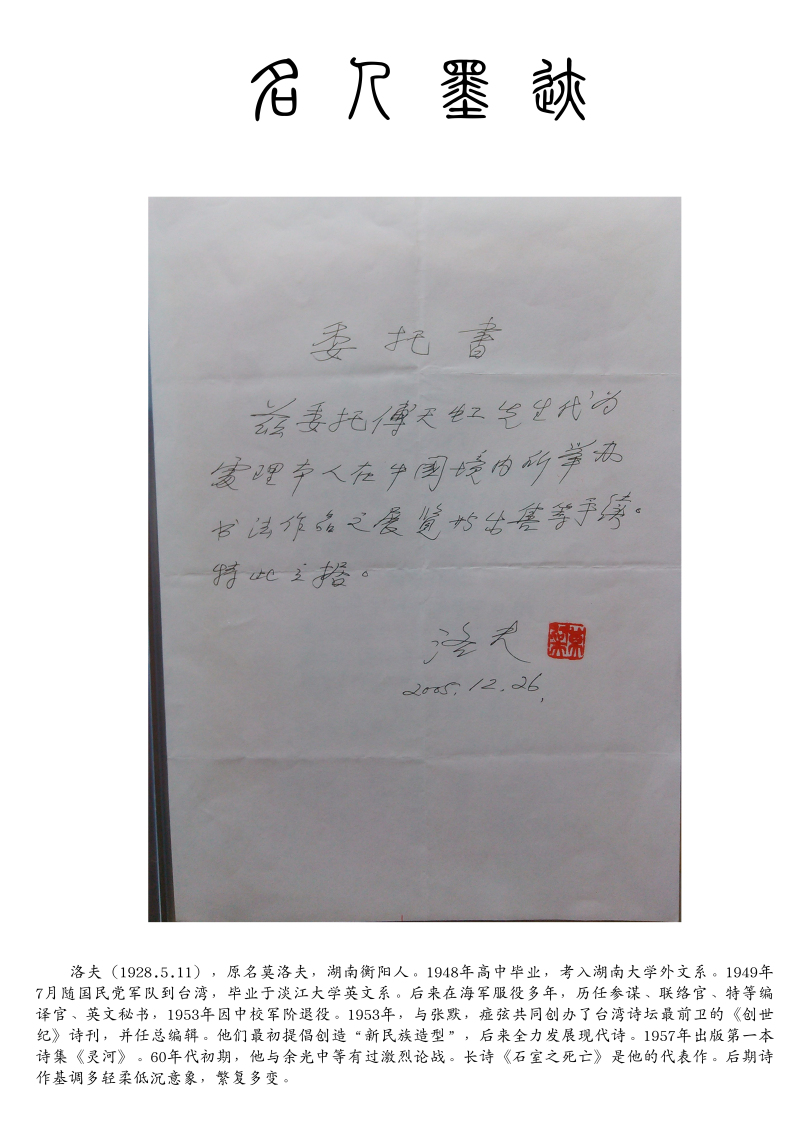 名人墨迹
委托書
兹委托傅天虹先生代为
處理本人在中國境内所举办
书法作品之展覽与出售等手續。
特此立據。
洛夫
2005.12.26.
洛夫（1928.5.11），原名莫洛夫，湖南衡阳人。1948年高中毕业，考入湖南大学外文系。1949年
7月随国民党军队到台湾，毕业于淡江大学英文系。后来在海军服役多年，历任参谋、联络官、特等编
译官、英文秘书，1953年因中校军阶退役。1953年，与张默，痖弦共同创办了台湾诗坛最前卫的《创世
纪》诗刊，并任总编辑。他们最初提倡创造“新民族造型”，后来全力发展现代诗。1957年出版第一本
诗集《灵河》。60年代初期，他与余光中等有过激烈论战。长诗《石室之死亡》是他的代表作。后期诗
作基调多轻柔低沉意象，繁复多变。